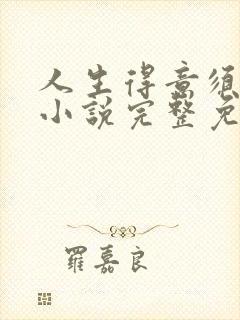 人生得意須
小說完整免
羅嘉良